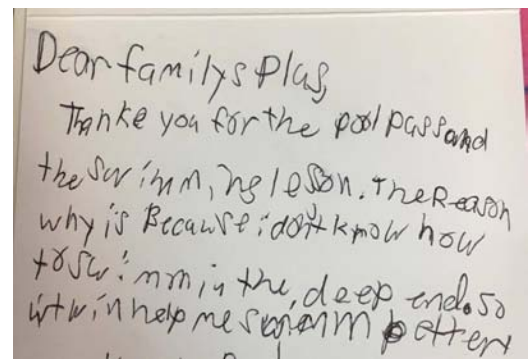 Dear familys Plus,
Thanke you for the pool pass and
the swimming leson. The Reason
why is Because i don't know how
to swimm in the deep end. so
it win help me swimm better